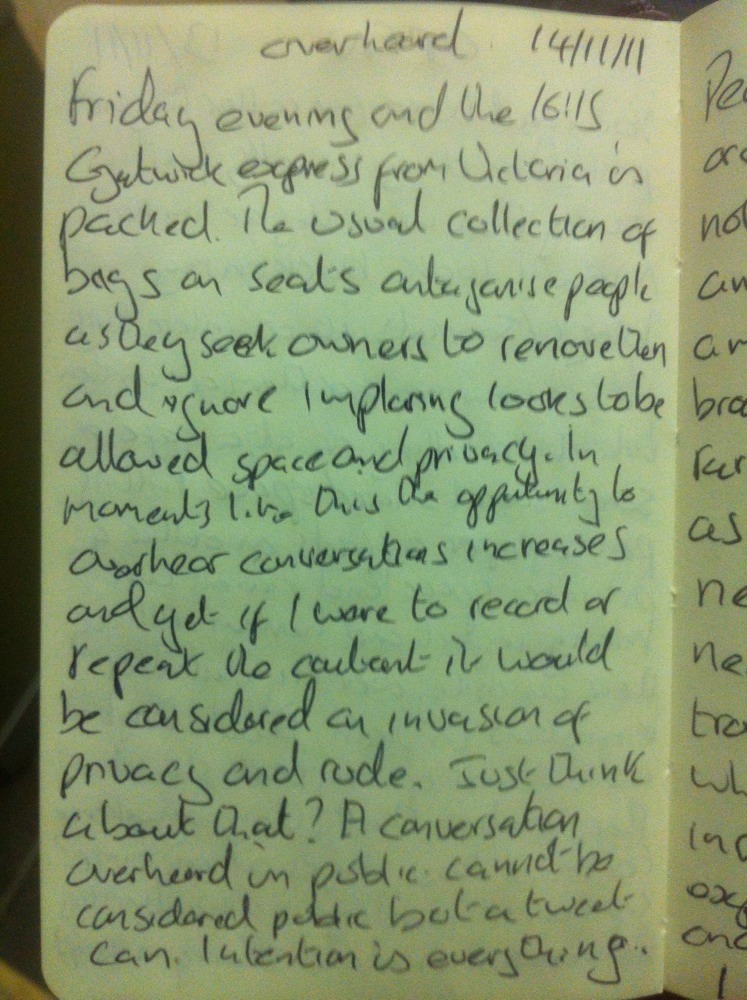 overheard 14/11/11
Friday evening and the 16:15
Gatwick express from Victoria is
packed. The usual collection of
bags on seats antagonise people
as they seek owners to remove them
and ignore imploring looks to be
allowed space and privacy. In
moments like this the opportunity to
overhear conversations increases
and yet if I were to record or
repeat the content it would
be considered an invasion of
privacy and rude. Just think
about that? A conversation
overheard in public cannot be
considered public but a tweet
can. Intention is everything..
not
as